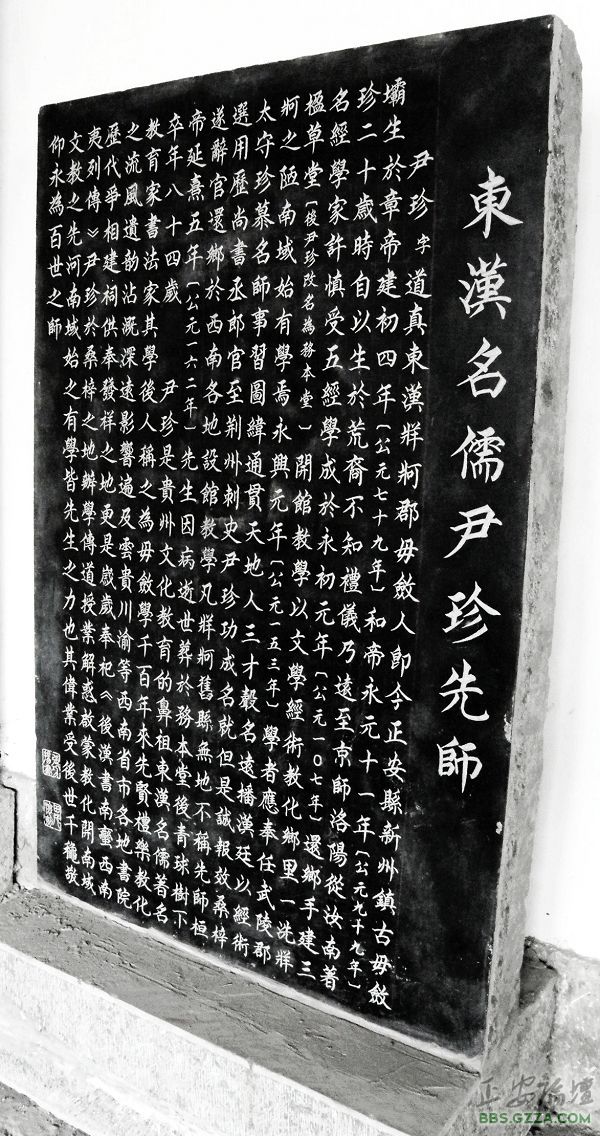 東漢名儒尹珍先師
尹珍字道真東漢牂牁郡毋斂人即今正安縣新州鎮古毋斂
壩生於章帝建初四年(公元七十九年)和帝永元十一年(公元九十九年)
珍二十歲時自以生於荒裔不知禮儀乃遠至京師洛陽從汝南著
名經學家許慎受五經學成於永初元年(公元一〇七年)還鄉手建三
楹草堂(後尹珍改名為務本堂)開館教學以文學經術教化鄉里一洗牂
牁之陋南域始有學焉永興元年(公元一五三年)學者應奉任武陵郡
太守珍慕名師事習圖緯通貫天地人三才穀名遠播漢廷以經術
選用歷尚書丞郎官至荆州刺史尹珍功成名就但是誠報效桑梓
遂辭官還鄉於西南各地設館教學凡牂牁舊縣無地不稱先師桓
帝延熹五年(公元一六二年)先生因病逝世葬於務本堂後青球樹下
卒年八十四歲　尹珍是貴州文化教育的鼻祖東漢名儒著名
教育家書法家其學後人稱之為毋斂學千百年來先賢禮樂教化
之流風遺韵沾溉深遠影響遍及雲貴川渝等西南省市各地書院
歷代爭相建祠供奉發祥之地更是歲歲奉祀《後漢書南蠻西南
夷列傳》尹珍於桑梓之地辦學傳道授業解惑啟蒙教化開南域
文教之先河南域始之有學皆先生之力也其偉業受後世千穐敬
仰永為百世之師
正安論壇
BBS.GZZA.COM